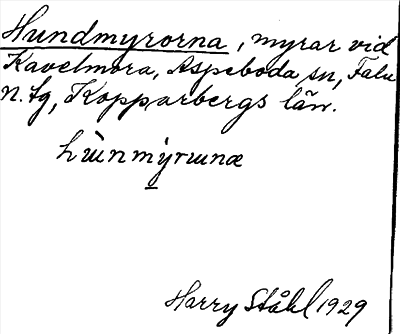 Hundmyrorna, myrar vid
Kavelmora, Aspeboda sn, Falu
n. tg, Kopparbergs län.
hɯ̀nmy̠rɯnæ
Harry Ståhl 1929